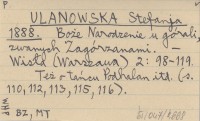 P
ULANOWSKA Stefanja
1888. Boże Narodzenie u górali,
zwanych Zagórzanami. –
Wisła (Warszawa) 2: 98-119.
Też o tańcu Podhalan itd. (s.
110, 112, 113, 115, 116).
BZ, MT